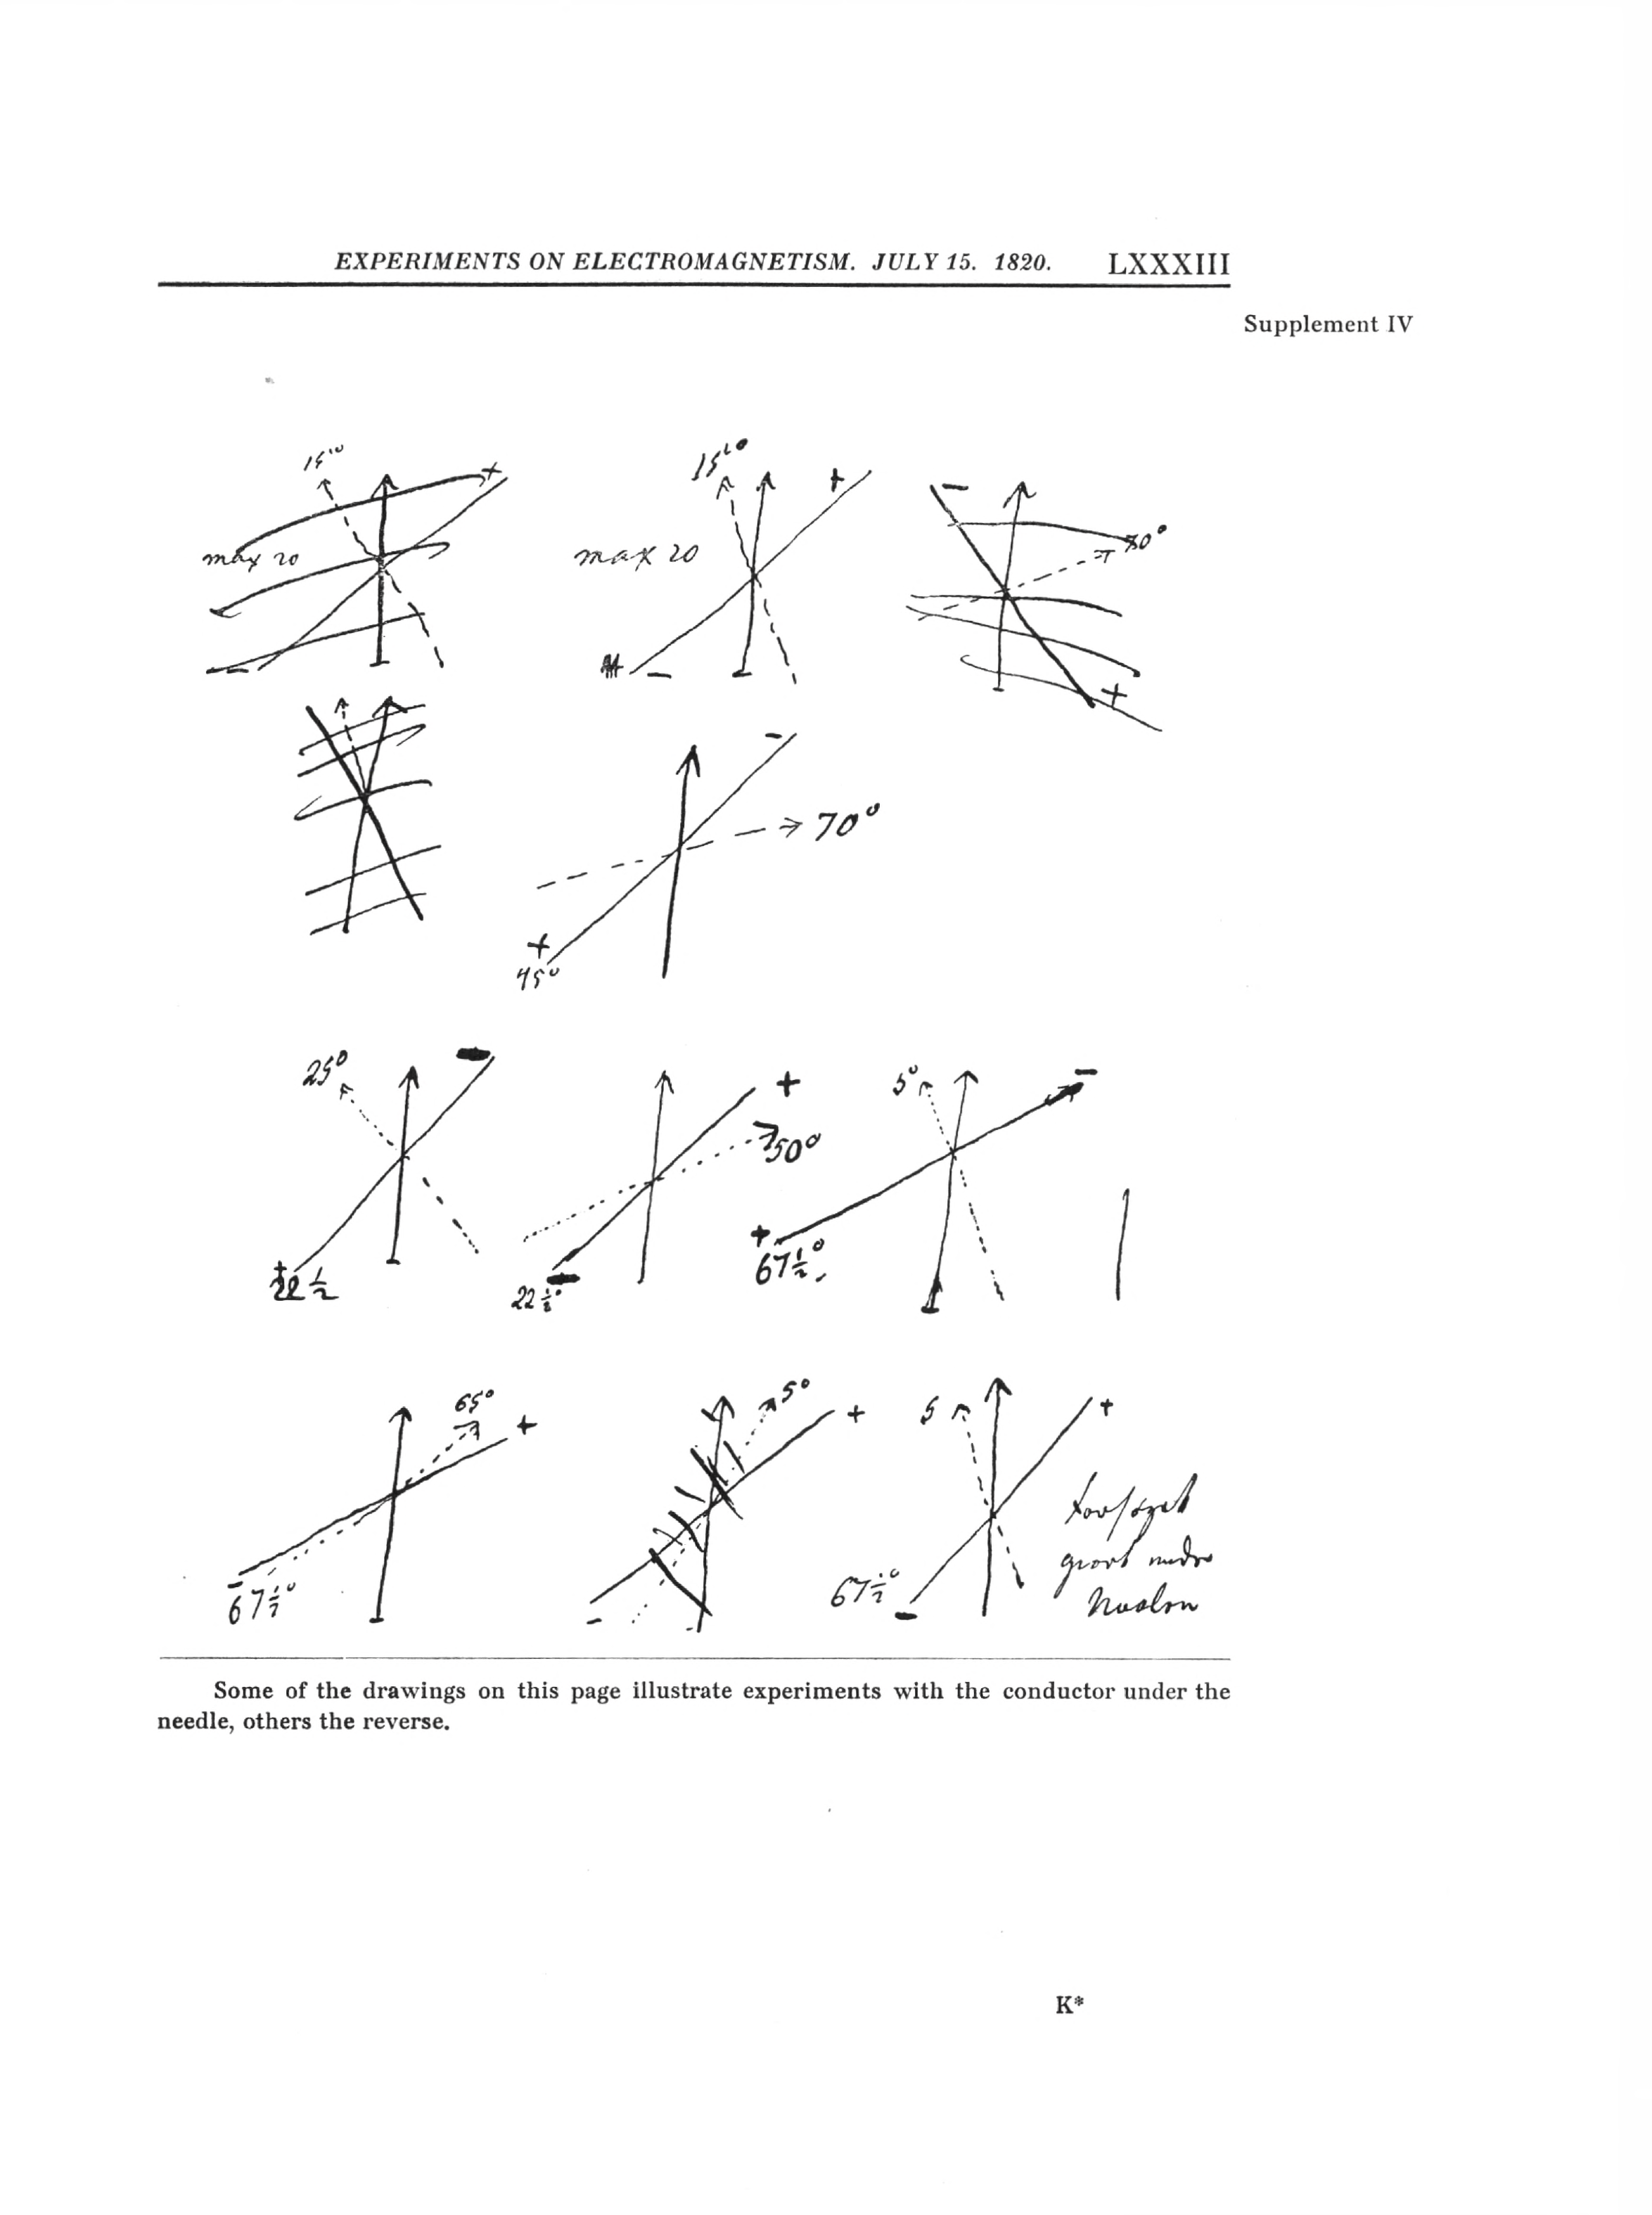 EXPERIMENTS ON ELECTROMAGNETISM. JULY 15. 1820. LXXXIII
Supplement IV
+
max 20
-
15°
+
max 20
-
-
+
-
70°
+
45°
25°
-
22 1/2
+
50°
-
22 1/2°
5°
-
+
67 1/2°
65°
+
-
67 1/2°
5°
+
-
5
+
67 1/2°
-
Some of the drawings on this page illustrate experiments with the conductor under the
needle, others the reverse.
K*